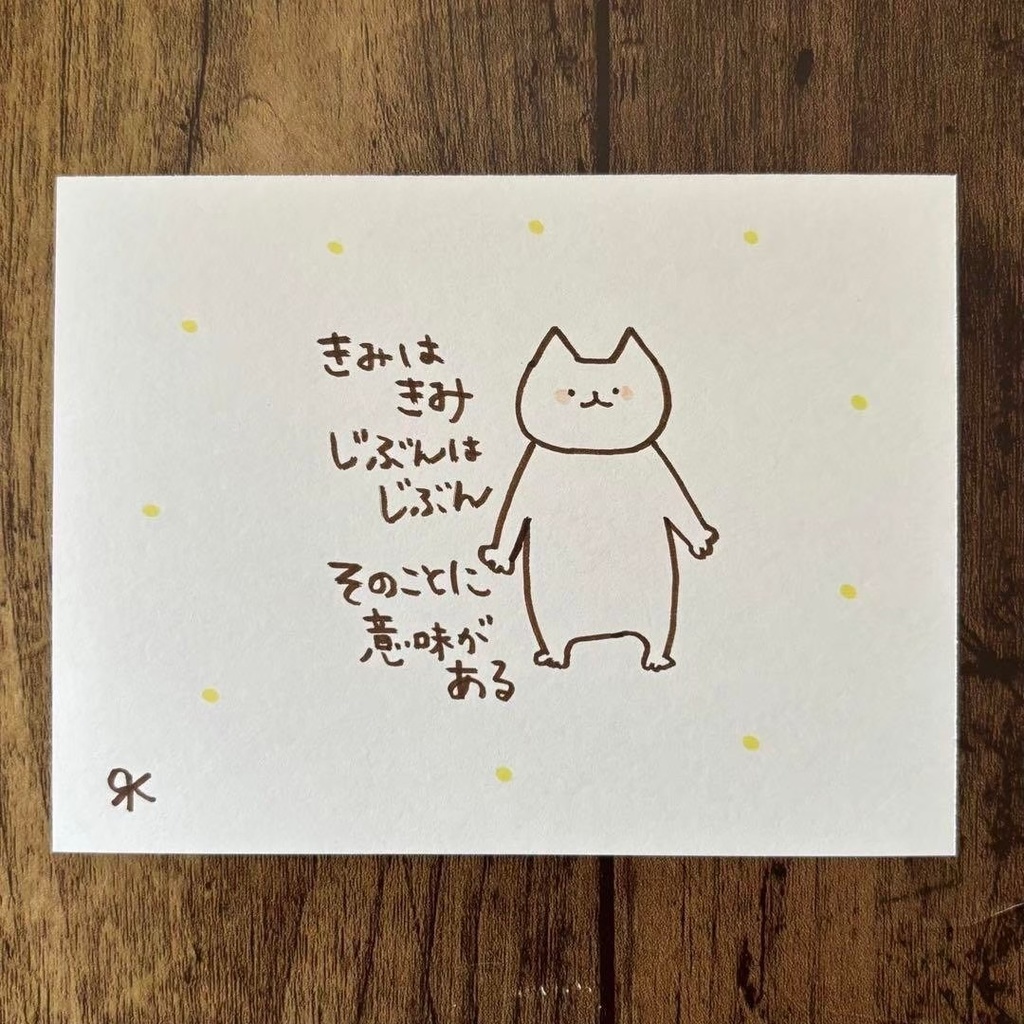 きみは
きみ
じぶんは
じぶん
そのことに
意味が
ある